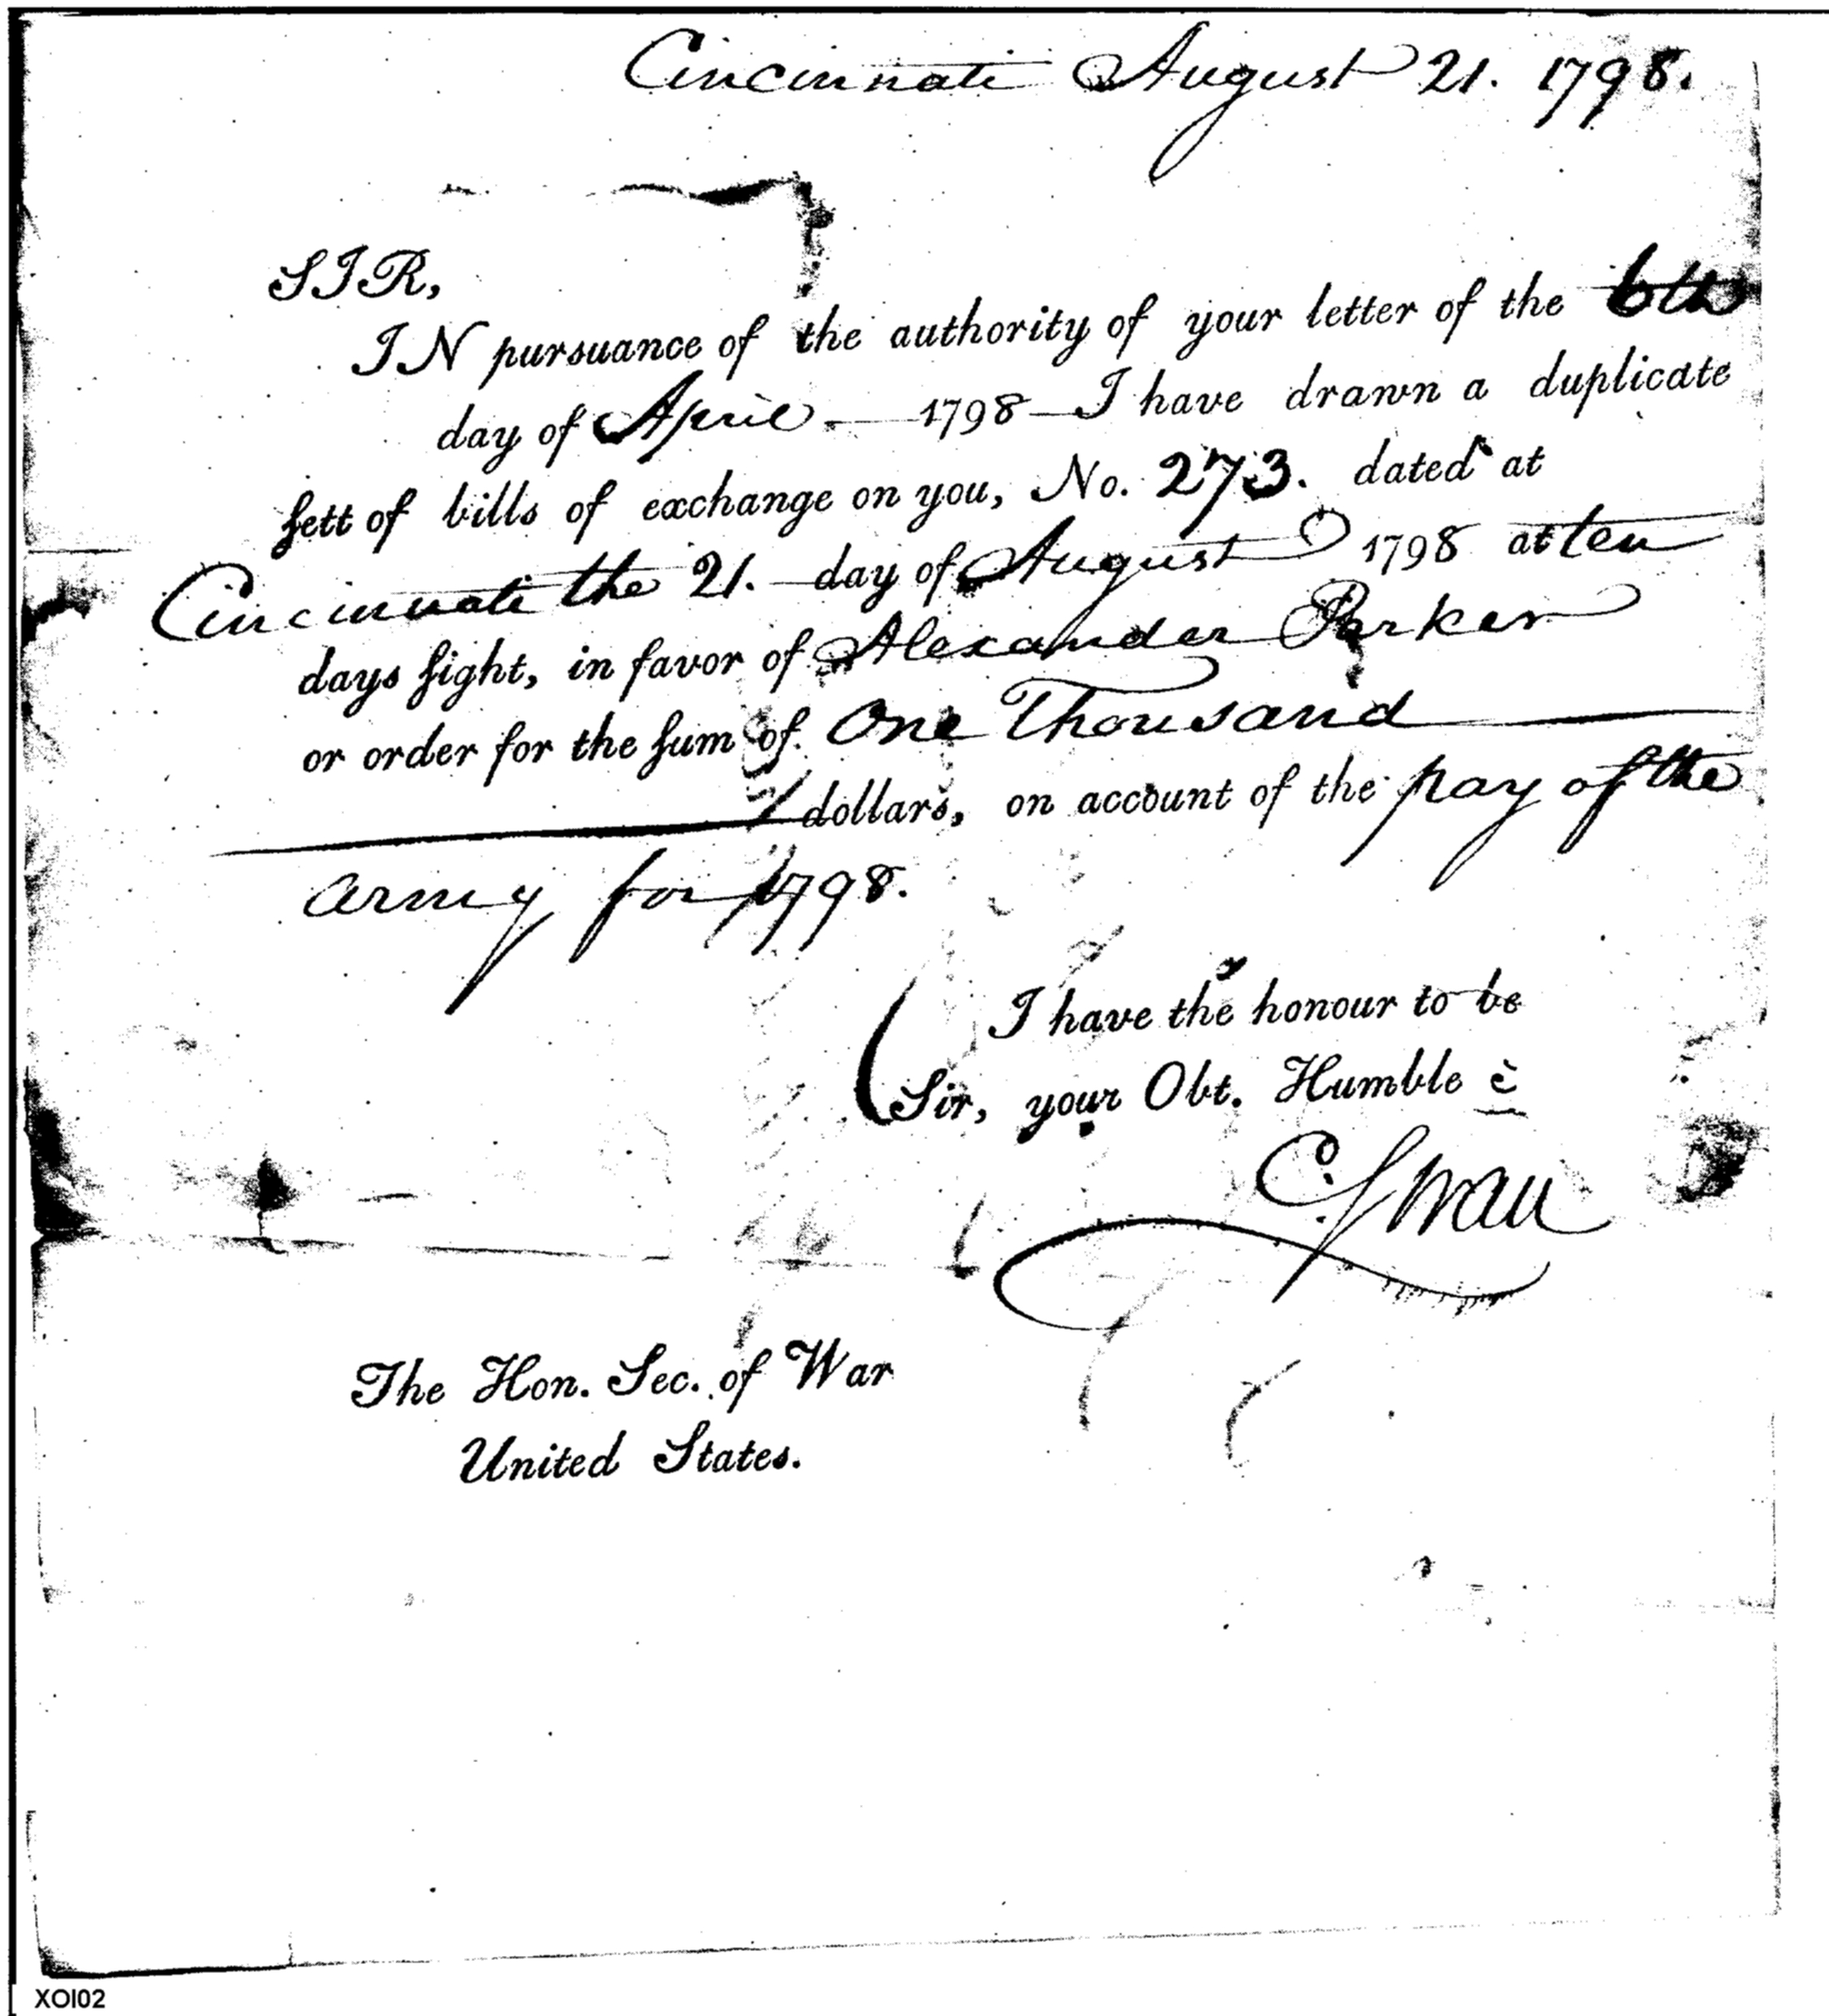 Cincinnati August 21. 1798.
SIR,
IN pursuance of the authority of your letter of the 6th
day of April — 1798 — I have drawn a duplicate
sett of bills of exchange on you, No. 273. dated at
Cincinnati the 21. day of August 1798 at ten
days sight, in favor of Alexander Parker
or order for the sum of One Thousand
dollars, on account of the pay of the
army for 1798.
I have the honour to be
Sir, your Obt. Humble
C Swan
The Hon. Sec. of War
United States.
XOI02